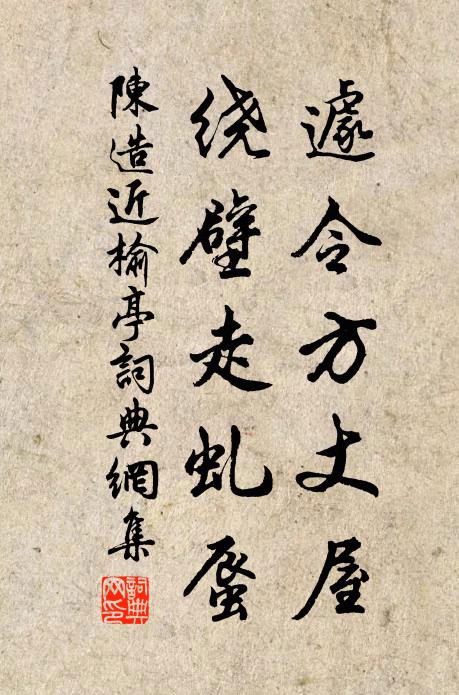 遽令方丈屋
绕壁走虬蜃
陳造近榆亭詞典網集